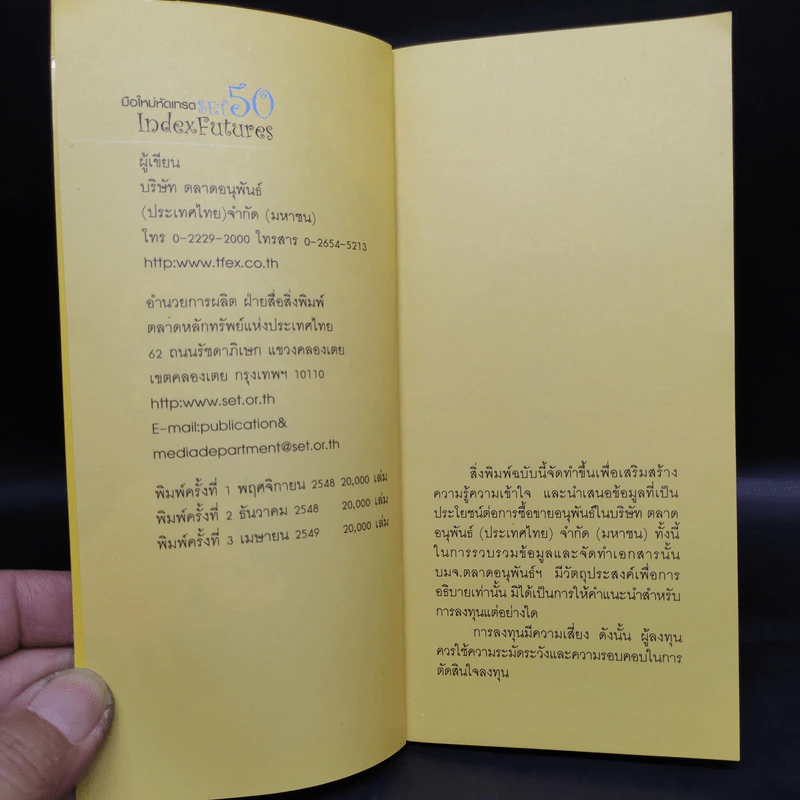 มือใหม่หัดเทรด SET 50
Index Futures
ผู้เขียน
บริษัท ตลาดอนุพันธ์
(ประเทศไทย)จำกัด (มหาชน)
โทร 0-2229-2000 โทรสาร 0-2654-5213
http:www.tfex.co.th
อำนวยการผลิต ฝ่ายสื่อสิ่งพิมพ์
ตลาดหลักทรัพย์แห่งประเทศไทย
62 ถนนรัชดาภิเษก แขวงคลองเตย
เขตคลองเตย กรุงเทพฯ 10110
http:www.set.or.th
E-mail:publication&
mediadepartment@set.or.th
พิมพ์ครั้งที่ 1 พฤศจิกายน 2548 20,000 เล่ม
พิมพ์ครั้งที่ 2 ธันวาคม 2548 20,000 เล่ม
พิมพ์ครั้งที่ 3 เมษายน 2549 20,000 เล่ม
สิ่งพิมพ์ฉบับนี้จัดทำขึ้นเพื่อเสริมสร้าง
ความรู้ความเข้าใจ และนำเสนอข้อมูลที่เป็น
ประโยชน์ต่อการซื้อขายอนุพันธ์ในบริษัท ตลาด
อนุพันธ์ (ประเทศไทย) จำกัด (มหาชน) ทั้งนี้
ในการรวบรวมข้อมูลและจัดทำเอกสารนั้น
บมจ.ตลาดอนุพันธ์ฯ มีวัตถุประสงค์เพื่อการ
อธิบายเท่านั้น มิได้เป็นการให้คำแนะนำสำหรับ
การลงทุนแต่อย่างใด
การลงทุนมีความเสี่ยง ดังนั้น ผู้ลงทุน
ควรใช้ความระมัดระวังและความรอบคอบในการ
ตัดสินใจลงทุน